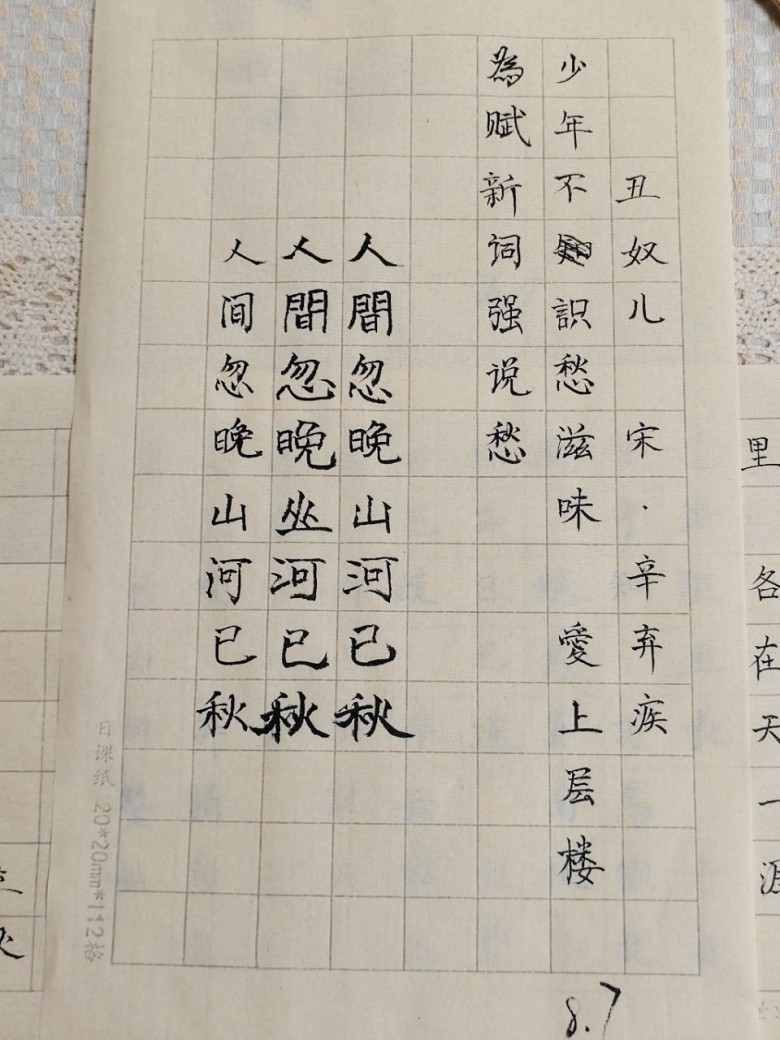 丑奴儿 宋·辛弃疾
少年不識愁滋味 愛上层楼
為赋新词强说愁
人間忽晚山河已秋
人間忽晚坐河已秋
人间忽晚山河已秋
8.7
日课纸 20*20mm*112格
里
各在天一源